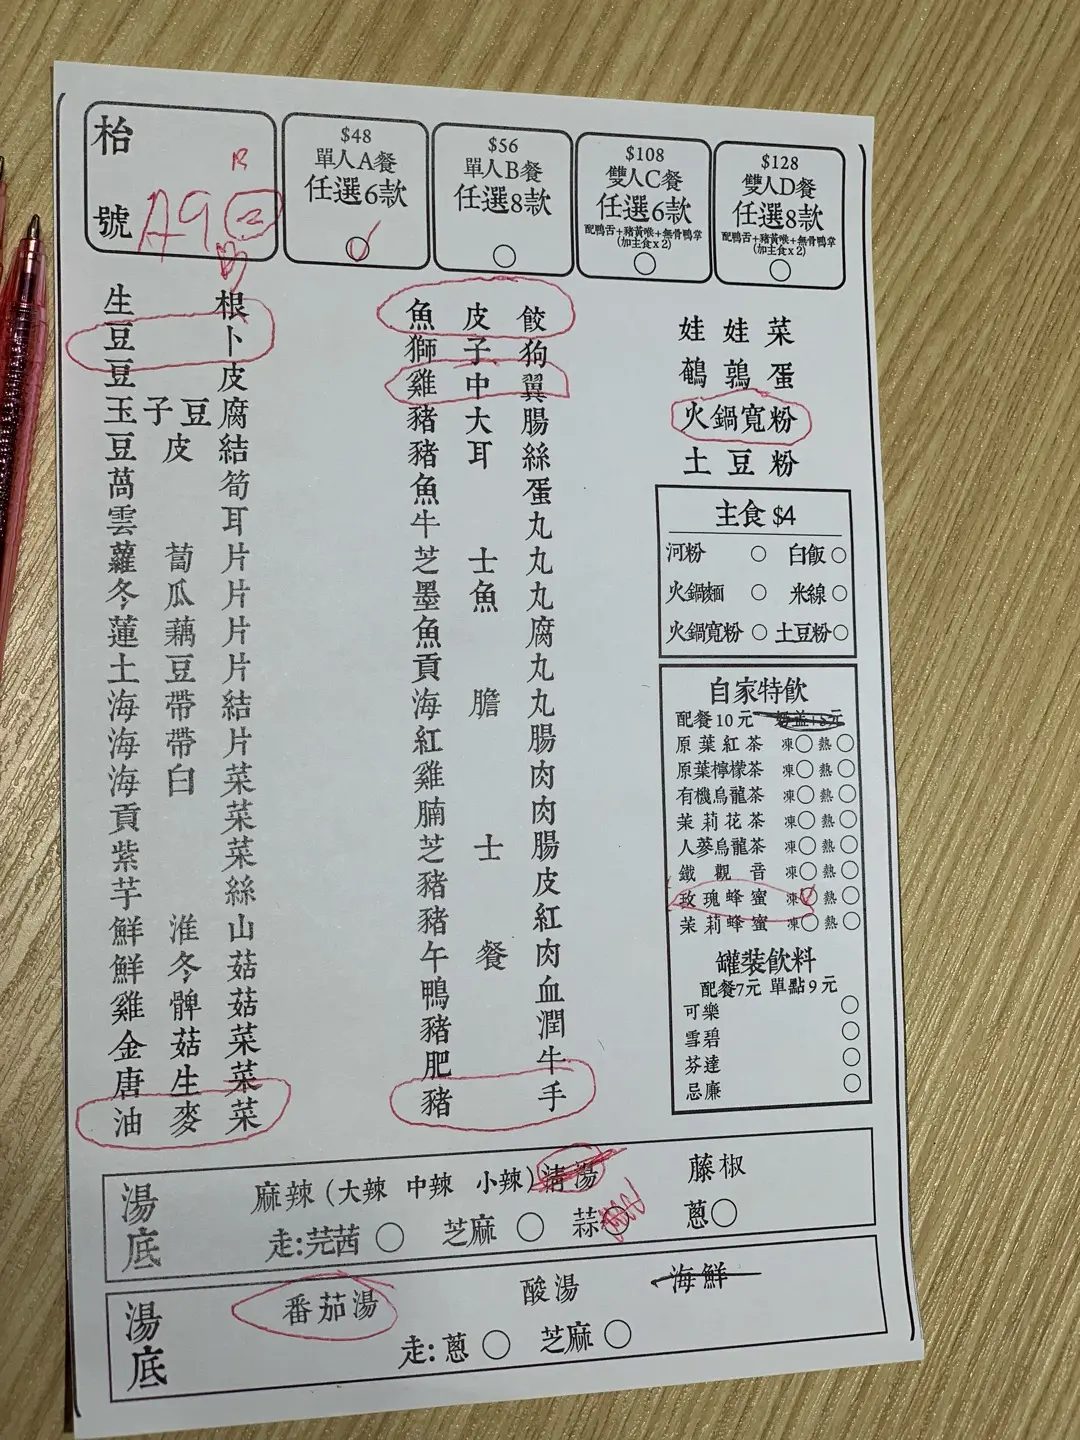 枱號 A9②
$48
單人A餐
任選6款
$56
單人B餐
任選8款
$108
雙人C餐
任選6款
配鴨舌+豬黃喉+無骨鴨掌
(加主食x2)
$128
雙人D餐
任選8款
配鴨舌+豬黃喉+無骨鴨掌
(加主食x2)
生根
豆卜
豆皮
玉子豆腐
豆皮結
萵筍
雲耳
蘿蔔片
冬瓜片
蓮藕片
土豆片
海帶結
海帶片
海白菜
貢菜
紫菜
芋絲
鮮淮山
鮮冬菇
雞髀菇
金菇菜
唐生菜
油麥菜
魚皮餃
獅子狗
雞中翼
豬大腸
豬耳絲
魚蛋
牛丸
芝士丸
墨魚丸
魚腐
貢丸
海膽丸
紅腸
雞肉
腩肉
芝士腸
豬皮
豬紅
午餐肉
鴨血
豬潤
肥牛
豬手
娃娃菜
鵪鶉蛋
火鍋寬粉
土豆粉
主食 $4
河粉 ○ 白飯 ○
火鍋麵 ○ 米線 ○
火鍋寬粉 ○ 土豆粉 ○
自家特飲
配餐10元
原葉紅茶 凍○ 熱○
原葉檸檬茶 凍○ 熱○
有機烏龍茶 凍○ 熱○
茉莉花茶 凍○ 熱○
人蔘烏龍茶 凍○ 熱○
鐵觀音 凍○ 熱○
玫瑰蜂蜜 凍○ 熱○
茉莉蜂蜜 凍○ 熱○
罐裝飲料
配餐7元 單點9元
可樂 ○
雪碧 ○
芬達 ○
忌廉 ○
湯底
麻辣(大辣 中辣 小辣) 清湯 藤椒
走:芫茜 ○ 芝麻 ○ 蒜○ 蔥○
湯底
番茄湯 酸湯 海鮮
走:蔥 ○ 芝麻 ○